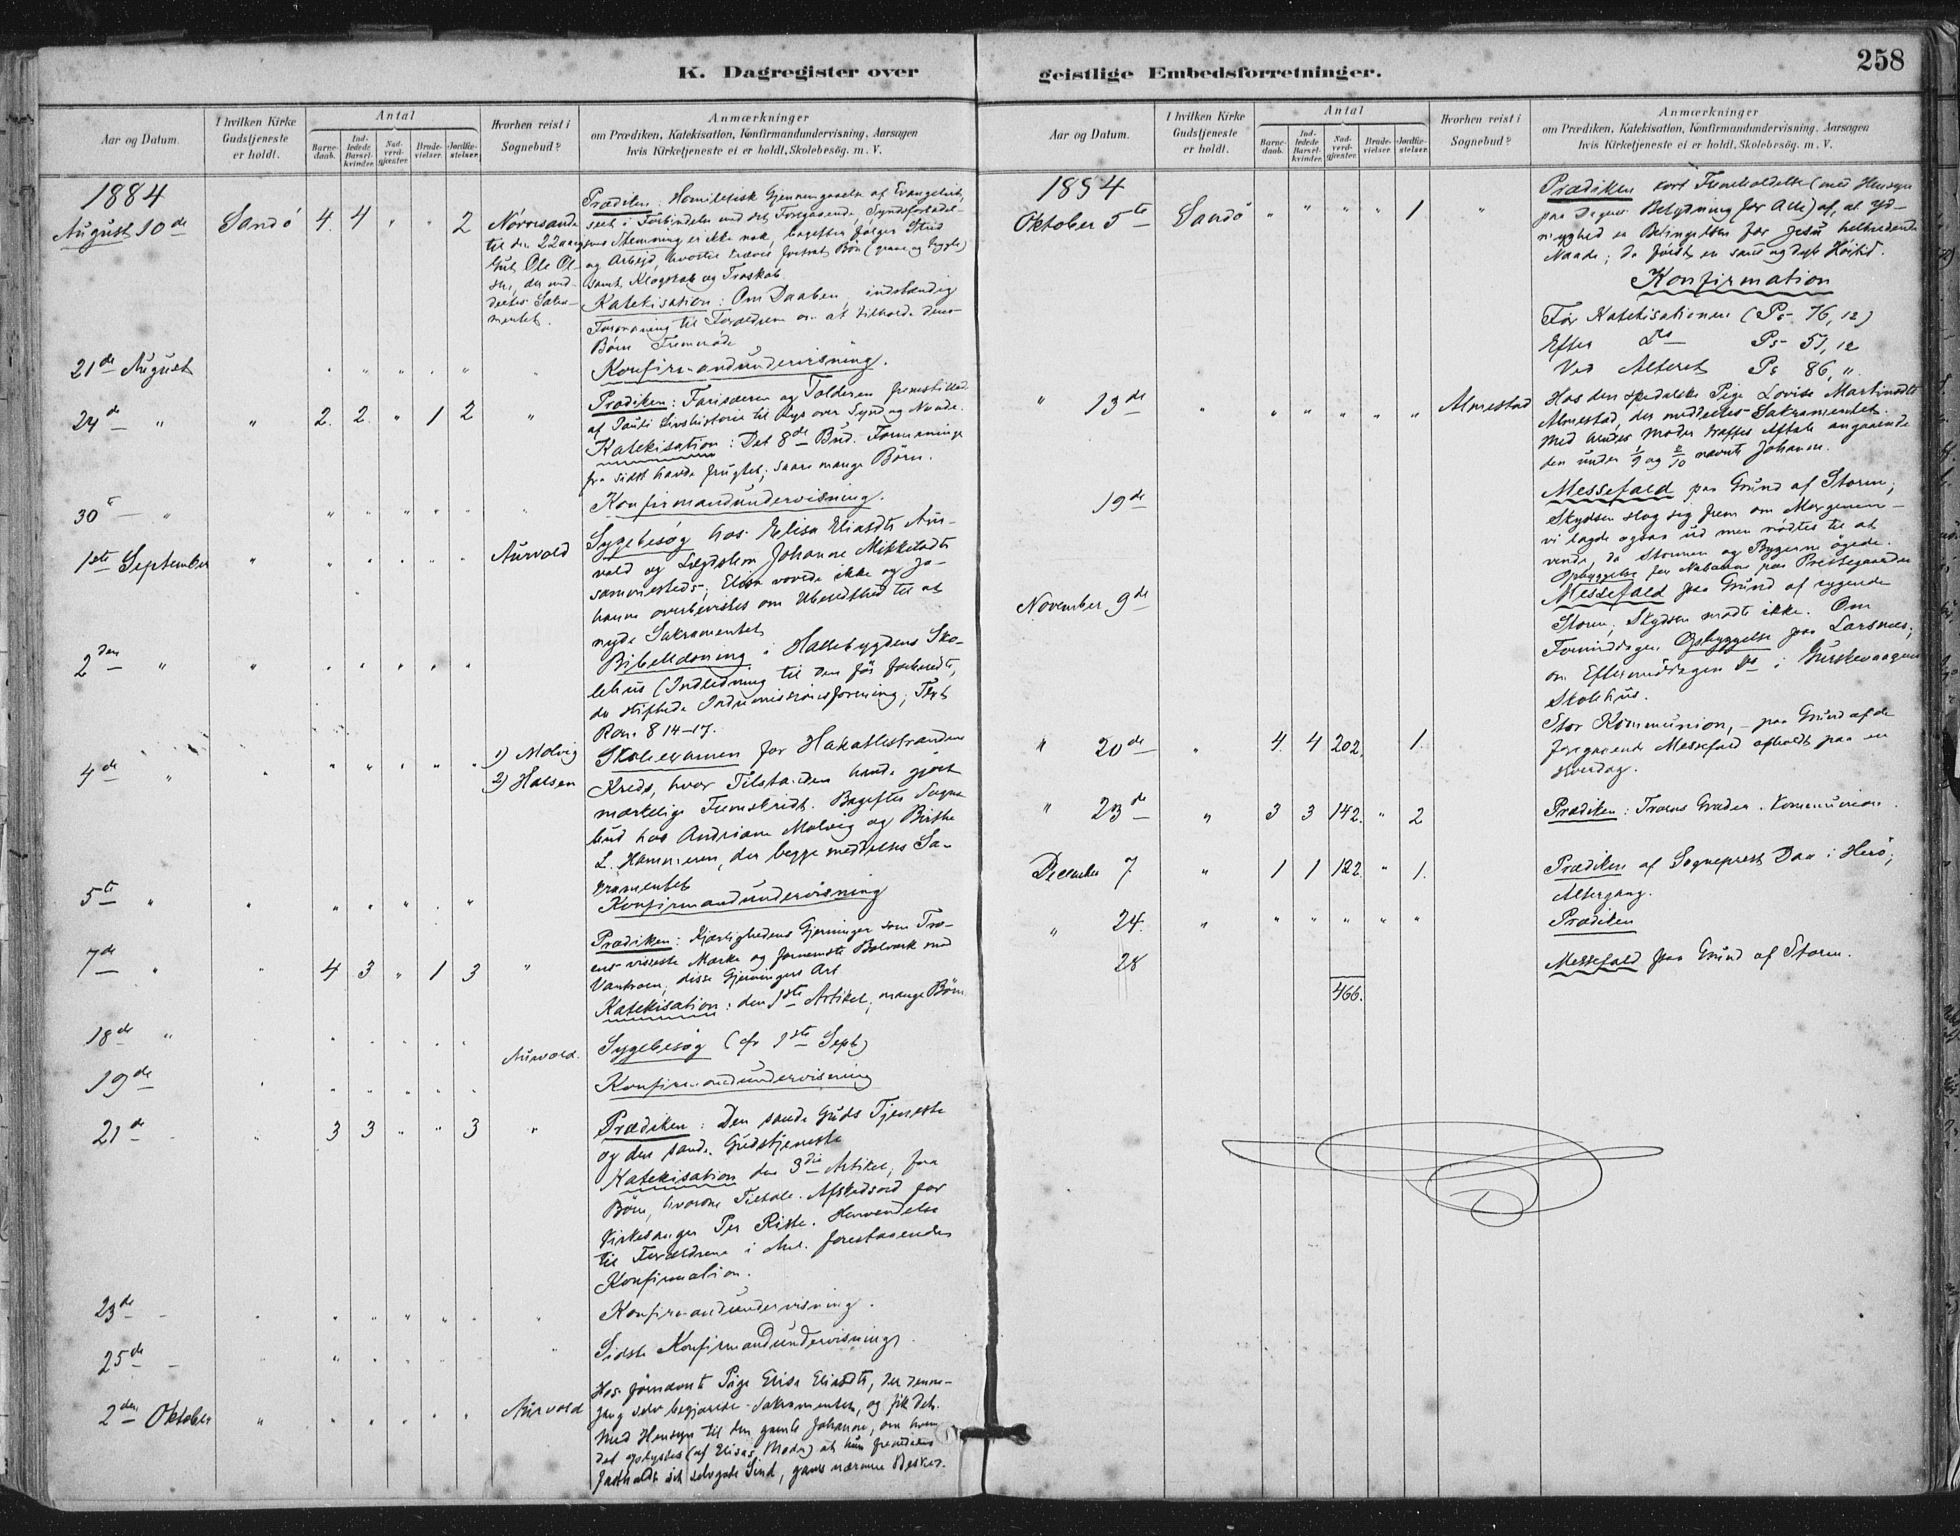 258
K. Dagregister over
geistlige Embedsforretninger.
Aar og Datum.
I hvilken Kirke Gudstjeneste er holdt.
Antal
Barnedaab.
Indledede Barselkvinder.
Nadverdgjester.
Brudevielser.
Jordfæstelser.
Hvorhen reist i Sognebud?
Anmærkninger
om Prædiken, Katekisation, Konfirmandundervisning, Aarsagen
hvis Kirketjeneste ei er holdt, Skolebesög. m. V.
1884
August 10de Sandö 4. 4 " " 2 Nörvesande
til den 22aarige
Gut Ole Ol-
sen, der med-
deeltes Sakra-
mentet.
Prædiken: Homiletisk Gjennemgaaelse af Evangeliet,
seet i Forbindelse med det Foregaaende. Syndsforladel-
sens Stemning er ikke nok, bagefter følger Strid
og Arbeid, hvortil kræves fortrøst Bøn
samt Klogskab og Troskab.
Katekisation: Om Daaben, indstændig
Formaning til Forældrene om at tilholde deres
Børn Fremmøde
21de August Konfirmandundervisning.
24de " " 2. 2. " 1 2 "
Prædiken: Farisæeren og Tolderen fremstillet
af Pauli Livshistorie til Lys over Synd og Naade.
Katekisation: Det 8de Bud. Formaninge
fra sidst havde frugtet; svare mange Børn.
30te " Konfirmandundervisning.
1ste September " Aurvold
Sygebesøg hos Elisa Eliasdtr Aur-
vold og Lægdslem Johanne Mikkelsdtr
sammesteds; Elisa vovede ikke og Jo-
hanne overbevistes om Uberedthed til at
nyde Sakramentet
2den " " Bibellæsning i Hallebygdens Sko-
lehus (Indledning til den før forberedte,
da stiftede Indremissionsforening; Text
Rom. 8 14-17.
4de " 1) Molvig
2) Halsen
Skoleexamen for Hakallestrandens
Kreds, hvor Tilstanden havde gjort
mærkelige Fremskridt. Bagefter Sogne-
bud hos Andriane Molvig og Birthe
L. Hammeren, der begge meddeltes Sa-
kramentet
5te " Konfirmandundervisning
7de " " 4 3 " 1 3 "
Prædiken: Kjærlighedens Gjerninger som Tro-
ens visseste Mærke og fornemste Bolværk mod
Vantroen, disse Gjerningers Art
Katekisation: den 1ste Artikel; mange Børn
18de " Aurvold. Sygebesøg (cfr 1ste Sept)
19de Konfirmandundervisning
21de 3 3 " " 3 "
Prædiken: Den sande Guds Tjeneste
og den sande Gudstjeneste
Katekisation den 3die Artikel; faa
Børn, hvorom Tiltale. Afskedsord for
Kirkesanger Per Riste. Henvendelse
til Forældrene i Anl. forestaaende
Konfirmation.
23de Konfirmandundervisning.
25de Sidste Konfirmandundervisning.
2den Oktober " Aurvold
Hos førnævnte Pige Elisa Eliasdtr, der denne-
gang selv begjærede Sakramentet, og fik det.
Med Hensyn til den gamle Johanne, om hvem
det oplystes (af Elisas Moder) at hun fremdeles
fastholdt sit selvgode Sind, gaves nærmere Besked.
Aar og Datum.
I hvilken Kirke Gudstjeneste er holdt.
Antal
Barnedaab.
Indledede Barselkvinder.
Nadverdgjester.
Brudevielser.
Jordfæstelser.
Hvorhen reist i Sognebud?
Anmærkninger
om Prædiken, Katekisation, Konfirmandundervisning, Aarsagen
hvis Kirketjeneste ei er holdt, Skolebesög. m. V.
1884
Oktober 5te Sandö " " " " 1 "
Prædiken kort Fremholdelse (med Hensyn
paa Dagens Betydning for Alle) af, at Yd-
myghed er Betingelsen for Jesu helbredende
Naade; da først en sand og dyb Høitid.
Konfirmation
Før Katekisationen (Ps- 76, 12)
Efter Do Ps- 51, 12
Ved Alteret Ps 86, "
" 13de " Almestad
Hos den spedalske Pige Lovise Martinsdtr
Almestad, der meddeeltes Sakramentet.
Med hendes Moder traffes Aftale angaaende
den under 1/9 og 2/10 nævnte Johanne.
19de Messefald paa Grund af Storm;
Skydsen slog seg frem om Morgenen -
vi lagde ogsaa ud men nødtes til at
vende, da Stormen og Bygerne øgede.
Opbyggelse for Naboerne paa Prestegaarden
November 9de Messefald paa Grund af rygende
Storm; Skydsen mødte ikke. Om
Formiddagen Opbyggelse paa Larsnes;
om Eftermiddagen Do i Gurskevaagens
Skolehus.
" 20de " 4 4 202. 1.
Stor Kommunion, - paa Grund af de
foregaaende Messefald afholdt paa en
Hverdag.
" 23de " 3 3 142. " 2 Prædiken: Troens Grader. Kommunion.
December 7 " 1 1 122. " 1. Prædiken af Sogneprest Daa i Herö;
Altergang.
" 24. " Prædiken
28 Messefald paa Grund af Storm.
466.